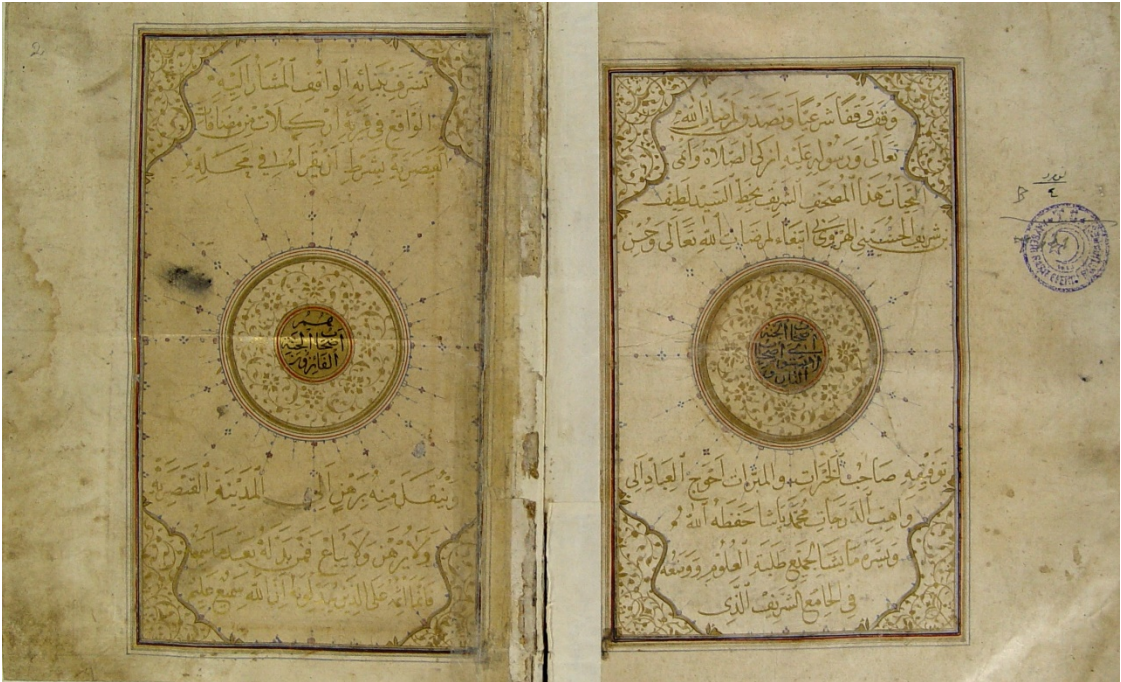 وقف وقفا شرعيا وتصدق لمرضات الله
تعالى ورسوله عليه ازكى الصلاة وانمى
التحيات هذا المصحف الشريف بخط السيد لطيف
بن شريف الحسيني الهروي ابتغاء لمرضات الله تعالى وحسن
اصحاب الجنة
توفيقه صاحب الخيرات والمبرات احوج العباد الى
واهب الدرجات محمد باشا حفظه الله
ويسره ما يشا لجميع طلبة العلوم ووضعه
في الجامع الشريف الذي
تشرف ببنائه الواقف المشار اليه
الواقع في قرية اركلات من مضافات
القيصرية بشرط ان يقراء في محله
اصحاب الجنة
هم
الفايزون
ولا ينقل منه برهن الى المدينة القيصرية
ولا يرهن ولا يباع فمن بدله بعد ما سمعه
فانما اثمه على الذين يبدلونه ان الله سميع عليم